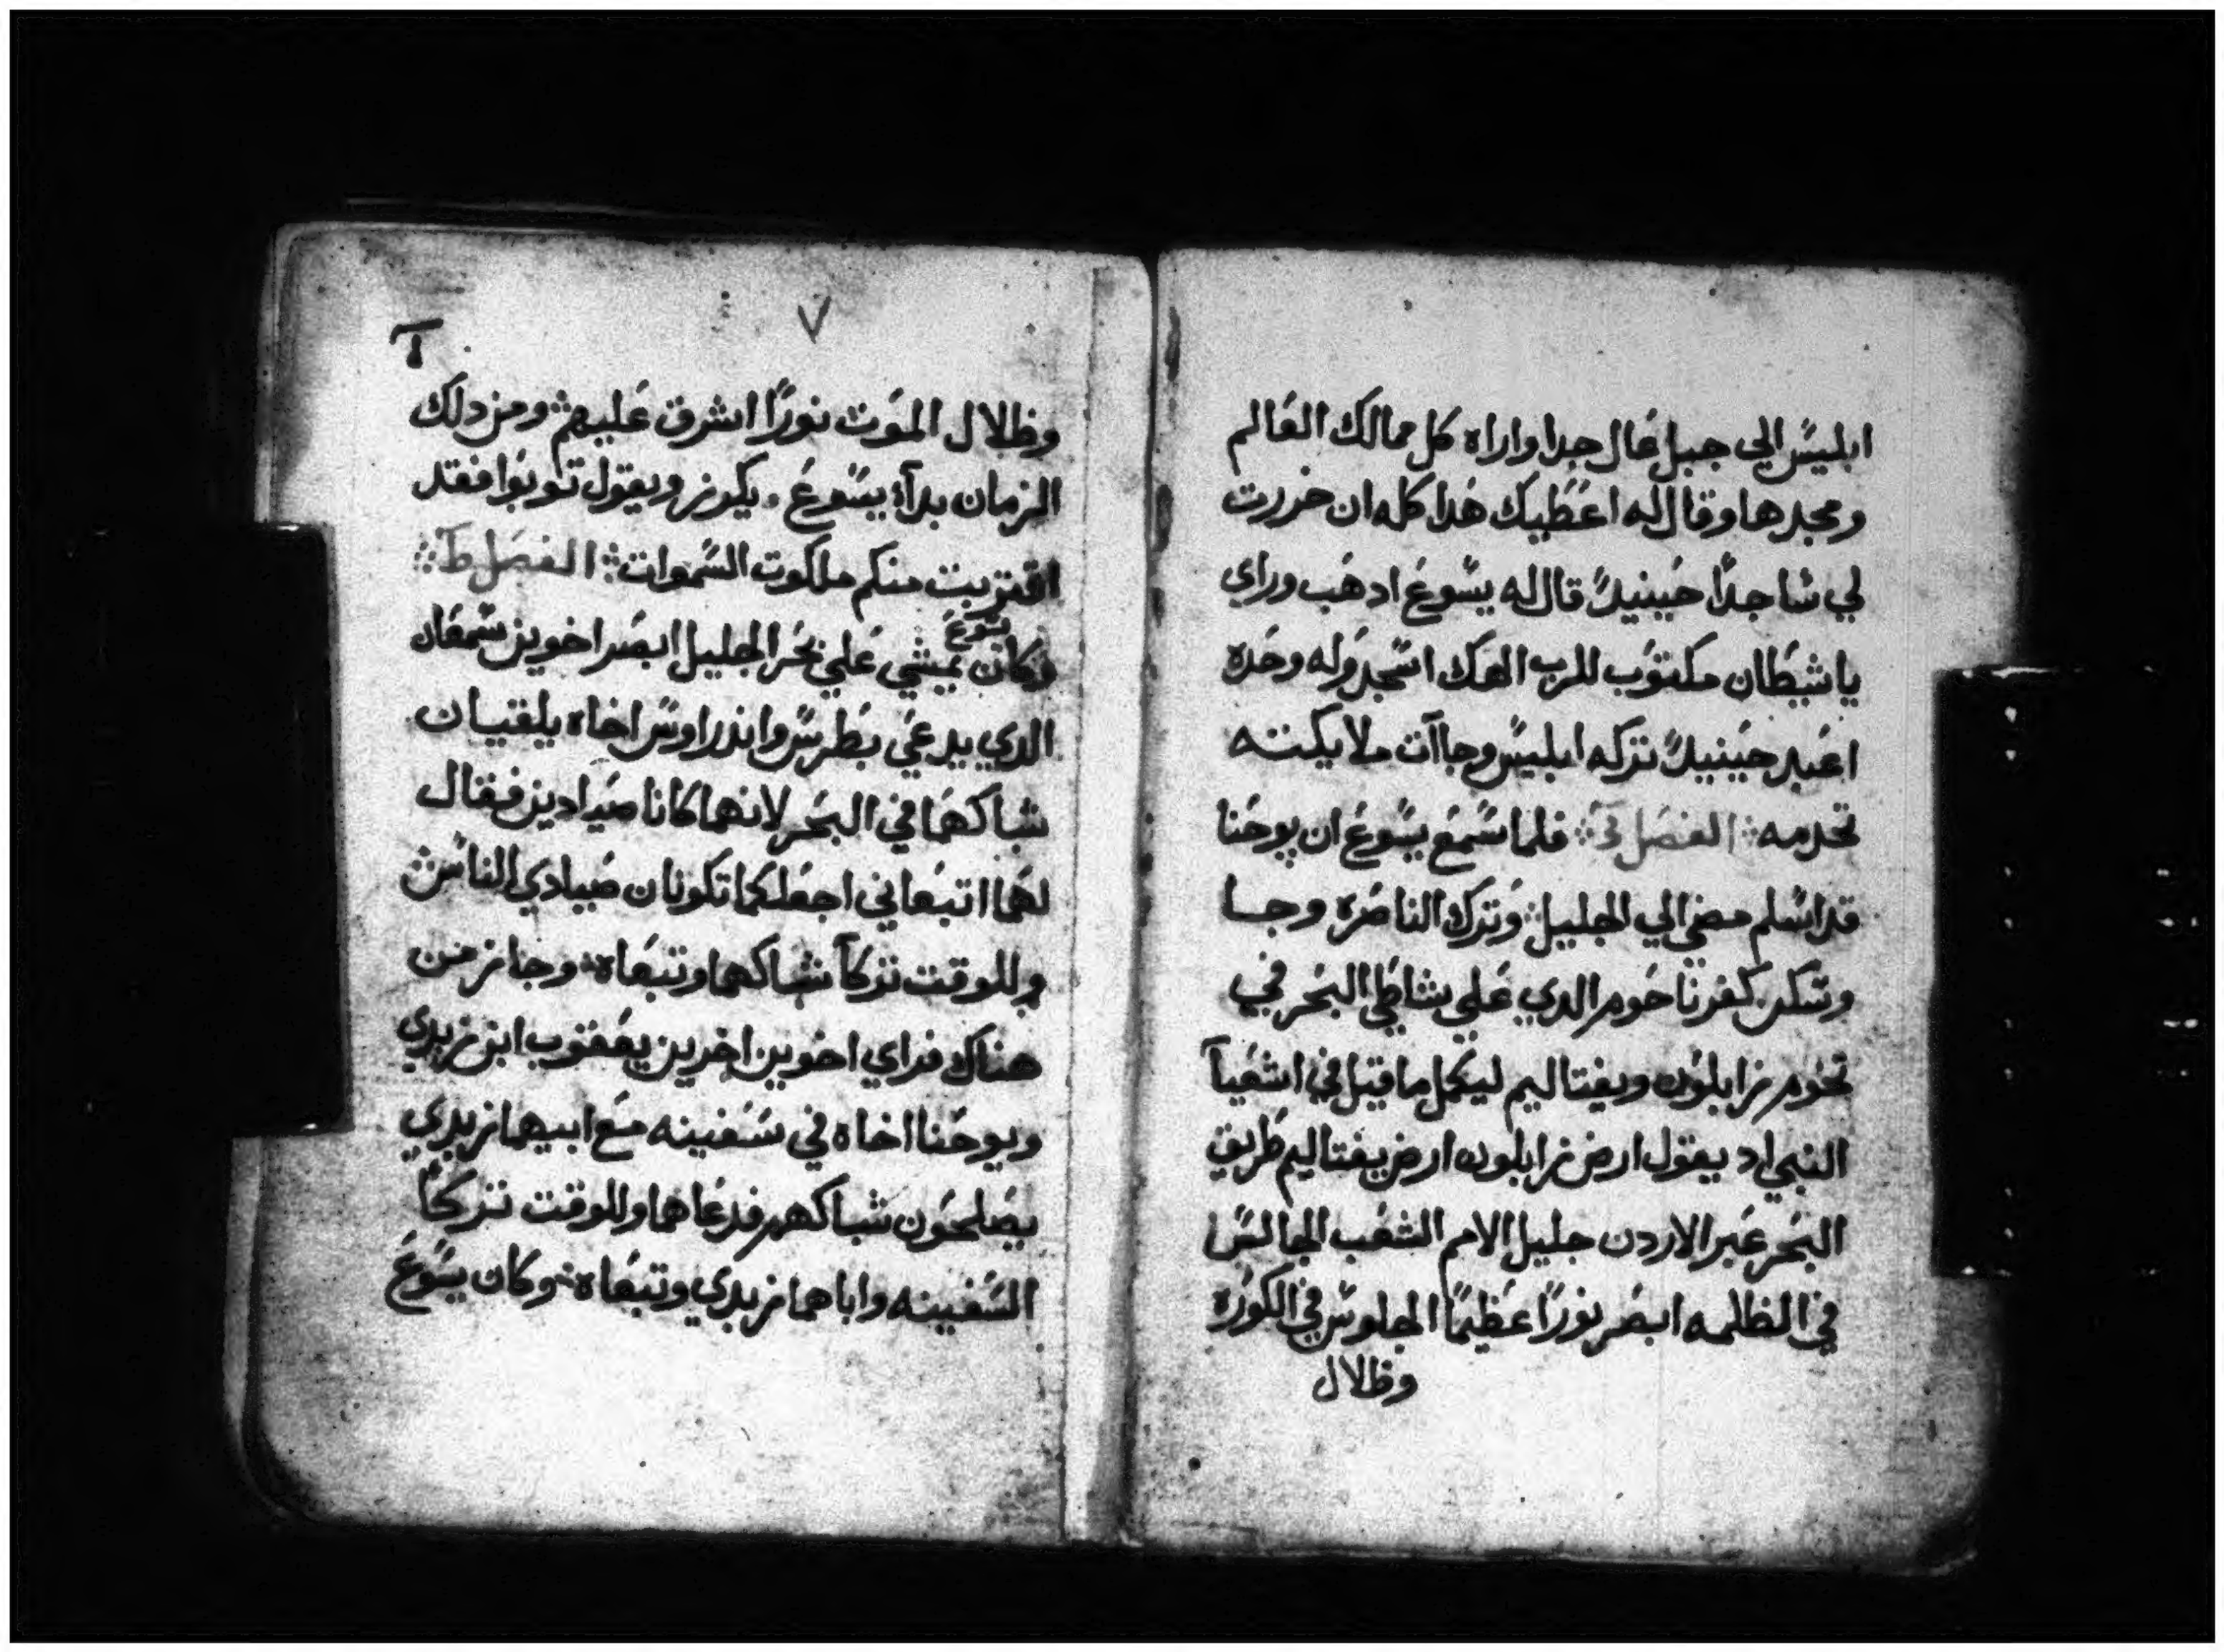 ابليس الي جبل عال جدا واراه كل ممالك العالم
ومجدها وقال له اعطيك هدا كله ان خررت
لي ساجدًا حينيدً قال له يسوع ادهب وراي
ياشيطان مكتوب للرب الهك اسجد وله وحده
اعبد حينيدً تركه ابليس وجاآت ملايكته
تخدمه الفصل فلما سمع يسوع ان يوحنا
قد اسلم مضي الي الجليل وترك الناصره وجا
وسكن كفرناحوم الدي علي شاطي البحر في
تخوم زابلون ونفتاليم ليكمل ما قيل في اشعيا
النبي اد يقول ارض زابلون ارض نفتاليم طريق
البحر عبر الاردن جليل الامم الشعب الجالس
في الظلمه ابصر نورًا عظيمًا الجلوس في الكوره
وظلال
٧
وظلال الموت نورًا اشرق عليهم ومن دلك
الزمان بدآ يسوع يكرز ويقول توبوا فقد
اقتربت منكم ملكوت السموات الفصل ط
يسوع
وكان يمشي علي بحر الجليل ابصر اخوين سمعان
الدي يدعي بطرس واندراوس اخاه يلقيان
شباكهما في البحر لانهما كانا صيادين فقال
لهما اتبعاني اجعلكما تكونان صيادي الناس
وللوقت تركآ شباكهما وتبعاه وجاز من
هناك فراي اخوين اخرين يعقوب ابن زبدي
ويوحنا اخاه في سفينه مع ابيهما زبدي
يصلحون شباكهم فدعاهما وللوقت تركا
السفينه واباهما زبدي وتبعاه وكان يسوع